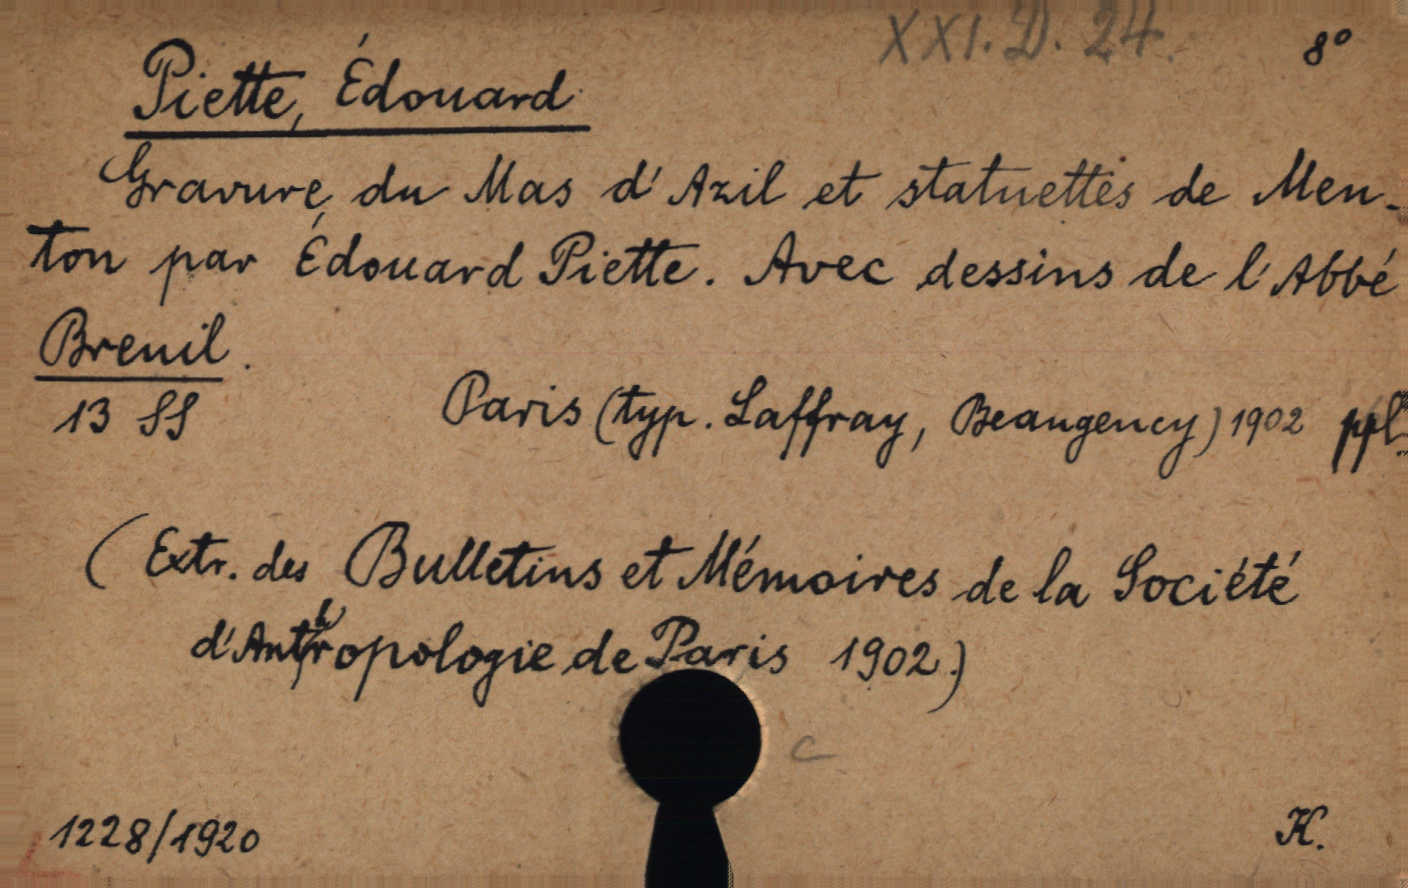 XXI. D. 24.
8°
Piette, Édouard
Gravure du Mas d'Azil et statuettes de Men-
ton par Édouard Piette. Avec dessins de l'Abbé
Breuil.
13 SS Paris (typ. Laffray, Beaugency) 1902 ppl
(Extr. des Bulletins et Mémoires de la Société
d'Anthropologie de Paris 1902.)
c
1228/1920
K.